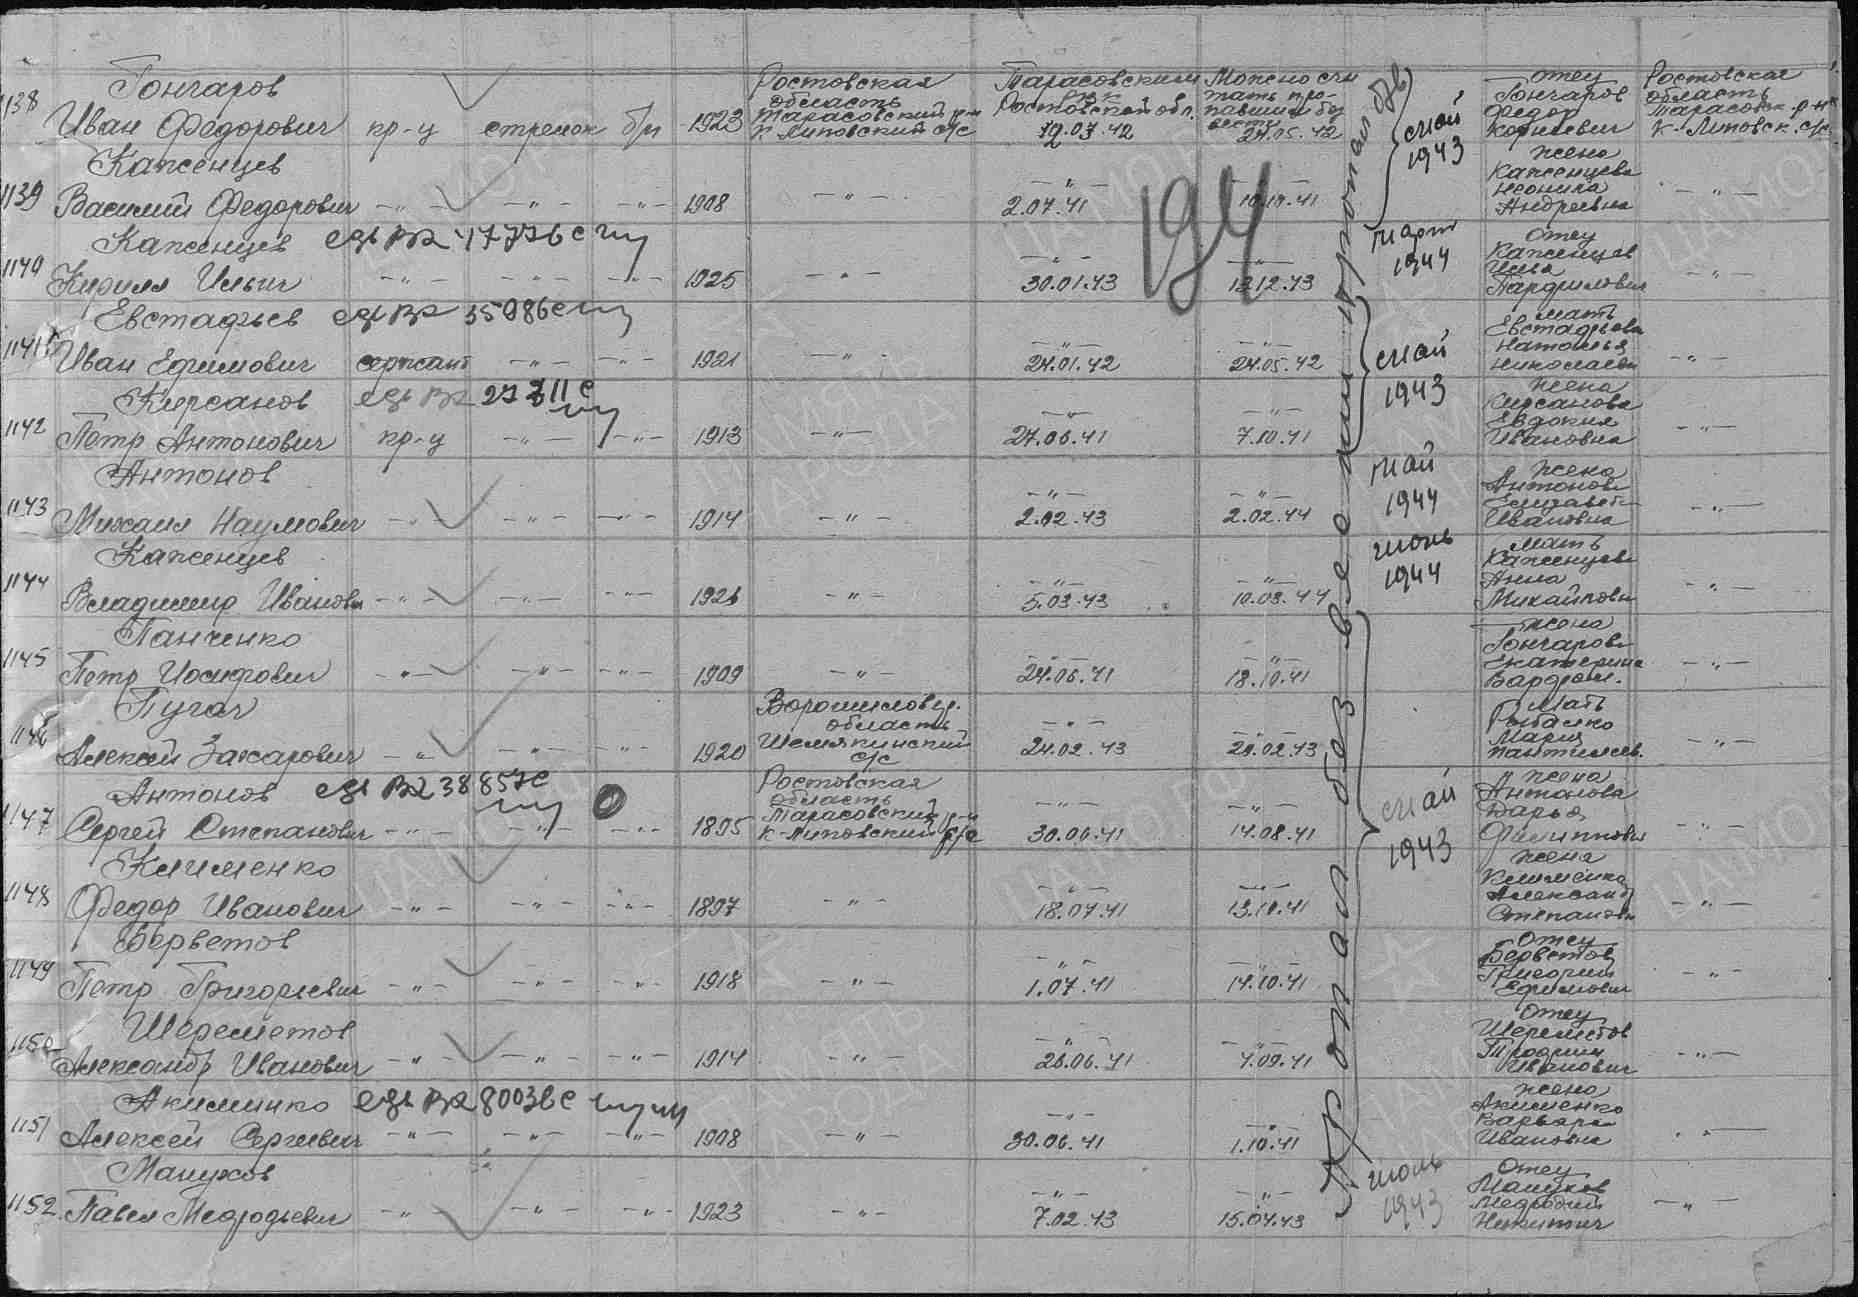 1138 Гончаров
Иван Федорович кр-ц стрелок б/п 1923 Ростовская область Тарасовский р-н К-Липовский с/с Тарасовским РВК Ростовской обл. 19.07.42 Можно счи тать про- павшим без вести 24.05.42 май 1943 отец Гончаров Федор Корнеевич Ростовская область Тарасовск. р-н К-Липовск. с/с
1139 Каженцев
Василий Федорович -"- -"- -"- 1908 -"- -"- 2.07.41 10.10.41 жена Каженцева Неонила Андреевна -"-
1140 Каженцев
Кирилл Ильич -"- -"- -"- 1925 -"- -"- 30.01.43 -"- 12.12.43 март 1944 отец Каженцев Илья Парфилович -"-
1141 Евстафьев
Иван Ефимович сержант -"- -"- 1921 -"- -"- 24.01.42 -"- 24.05.42 май 1943 мать Евстафьева Наталья Николаевн -"-
1142 Кирсанов
Петр Антонович кр-ц -"- -"- 1913 -"- -"- 27.06.41 -"- 7.10.41 жена Кирсанова Евдокия Ивановна -"-
1143 Антонов
Михаил Наумович -"- -"- -"- 1914 -"- -"- 2.02.43 -"- 2.02.44 май 1944 жена Антонова Елизавет Ивановна -"-
1144 Каженцев
Владимир Иванович -"- -"- -"- 1926 -"- -"- 5.03.43 -"- 10.03.44 июнь 1944 мать Каженцева Анна Михайловн -"-
1145 Панченко
Петр Иосифович -"- -"- -"- 1909 -"- -"- 24.06.41 -"- 18.10.41 жена Гончарова Екатерина Варфол. -"-
1146 Пугач
Алексей Захарович -"- -"- -"- 1920 Ворошиловгр. область Шелякинский с/с -"- 24.02.43 -"- 24.02.43 Мать Рыбалко Мария Пантилеев. -"-
1147 Антонов
Сергей Степанович -"- -"- -"- 1895 Ростовская область Тарасовский р-н К-Липовский с/с -"- 30.06.41 -"- 14.08.41 май 1943 жена Антонова Дарья Филипповн -"-
1148 Клименко
Федор Иванович -"- -"- -"- 1897 -"- -"- 18.07.41 -"- 13.10.41 жена Клименко Александ Степановн -"-
1149 Берветов
Петр Григорьевич -"- -"- -"- 1918 -"- -"- 1.07.41 -"- 14.10.41 Отец Берветов Григорий Ефимович -"-
1150 Шереметов
Александр Иванович -"- -"- -"- 1914 -"- -"- 26.06.41 -"- 4.09.41 Отец Шереметов Трофим Иванович -"-
1151 Акименко
Алексей Сергеевич -"- -"- -"- 1908 -"- -"- 30.06.41 -"- 1.10.41 жена Акименко Варвара Ивановна -"-
1152 Манухов
Павел Мефодьевич -"- -"- -"- 1923 -"- -"- 7.02.43 -"- 15.04.43 июль 1943 Отец Манухов Мефодий Никитич -"-
194
Пропал без вести